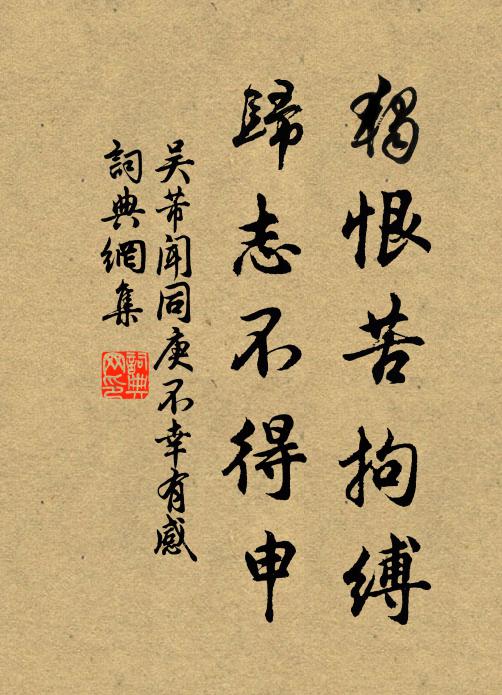 獨恨苦拘縛
歸志不得申
吴芾聞同庚不幸有感
詞典網集
詞典
网印